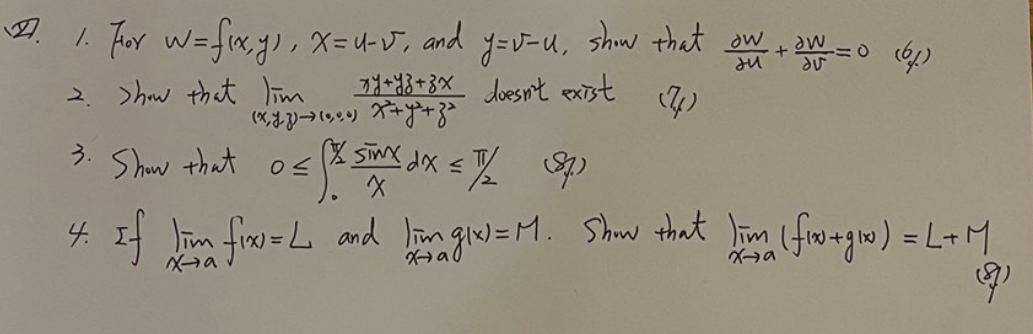 VI. 1. For w=f(x,y), x=u-v, and y=v-u, show that ∂w/∂u + ∂w/∂v = 0 (6%)
2. Show that lim (x,y,z)→(0,0,0) (xy+yz+zx)/(x²+y²+z²) doesn't exist (7%)
3. Show that 0 ≤ ∫₀^{π/2} (sinx/x) dx ≤ π/2 (8%)
4. If lim x→a f(x)=L and lim x→a g(x)=M. Show that lim x→a (f(x)+g(x)) = L+M (8%)